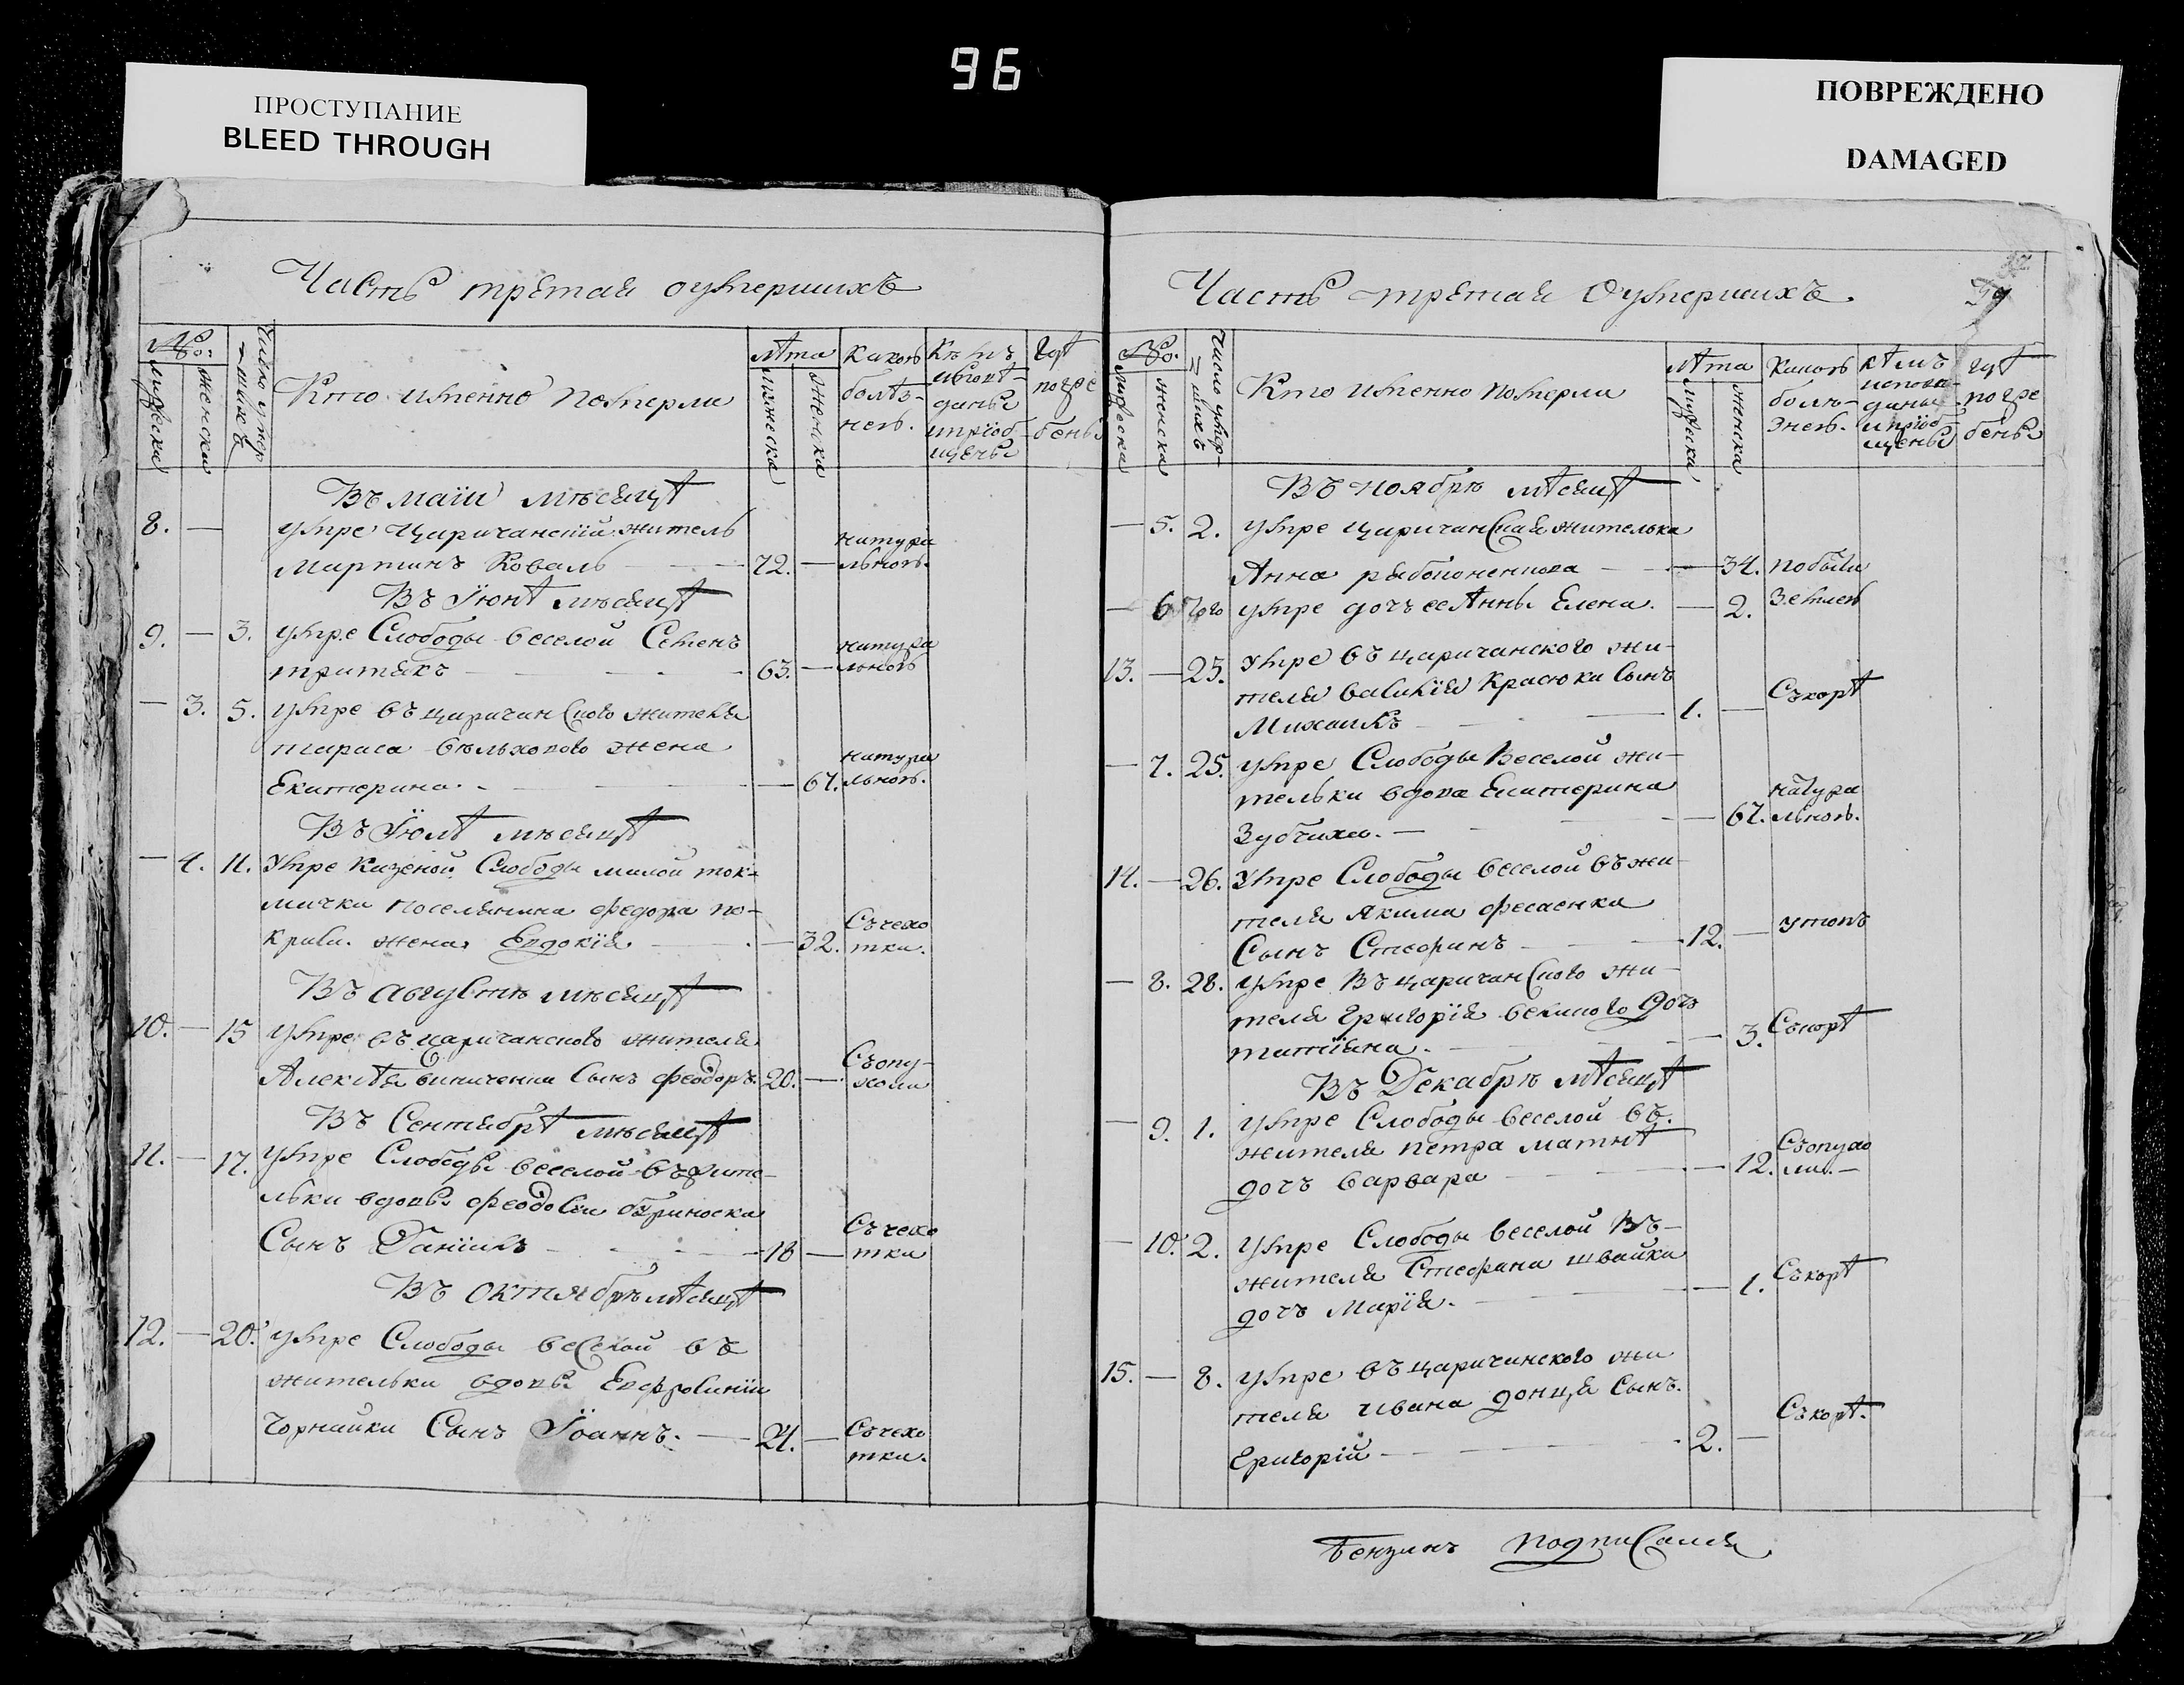 96
ПРОСТУПАНИЕ
BLEED THROUGH
ПОВРЕЖДЕНО
DAMAGED
Часть третая оумершихъ
№: Число умершихъ Кто именно померли лѣта какою болѣзнею. Кѣмъ исповѣданы и приобщены Гдѣ погребены
мужеска женска мужеска женска
Въ маiи мѣсяцѣ
8. — умре Царичанскiй житель
Мартинъ Коваль — 72. — натуральною.
Въ Iюнѣ мѣсяцѣ
9. — 3. умре Слободы веселой Семенъ
притыкъ — 63. — натуральною
— 3. 5. умре въ царичанского жителя
тараса жена
Екатерина. — 67. натуральною.
Въ Iюлѣ мѣсяцѣ
— 4. 11. Умре казеной Слободы малой ток-
мачки поселянина федора по-
жена Евдокiя — 32. Съчахотки.
Въ августѣ мѣсяцѣ
10. — 15 умре въ царичанского жителя
Алексѣя виниченка Сынъ феодоръ. 20. — Съопухоли
Въ Сентябрѣ мѣсяцѣ
11. — 17. умре Слободы веселой въ жите-
льки вдовы феодосiи
Сынъ Данiилъ — 18 — Съчахотки
Въ октябрѣ мѣсяцѣ
12. — 20. умре Слободы веселой въ
жительки вдовы Евфросинiи
Чорнайки Сынъ Iоаннъ. — 21. — Съчахотки.
Часть третая Оумершихъ.
№. Число умершихъ Кто именно померли лѣта Какою болѣзнею. кѣмъ исповѣданы и приобщены гдѣ погребены
мужеска женска мужеска женска
Въ ноябрѣ мѣсяцѣ
— 5. 2. умре царичанская жителька
Анна — 34. побыта
— 6 того умре дочь ее Анны Елена. — 2. Землею
13. — 25. Умре въ царичанского жи-
теля василiя Красюка Сынъ
Михаилъ — 1. — Съкорѣ
— 7. 25. умре Слободы Веселой жи-
тельки вдова Екатерина
Зубчиха. — 67. натуральною.
14. — 26. Умре Слободы веселой въ жи-
теля якима фесаенка
Сынъ Стефанъ — 12. — утопъ
— 8. 28. умре Въ царичанского жи-
теля григорiя великого дочь
татiяна. — 3. Съкорѣ
Въ Декабрѣ мѣсяцѣ
— 9. 1. умре Слободы веселой въ.
жителя петра
дочь варвара — 12. Съопухоли. —
— 10. 2. умре Слободы веселой Въ-
жителя Стефана швайки
дочь Марiя. — 1. Съкорѣ
15. — 8. умре въ царичанского жи
теля ивана донця Сынъ.
Григорiй — 2. — Съкорѣ.
подписался